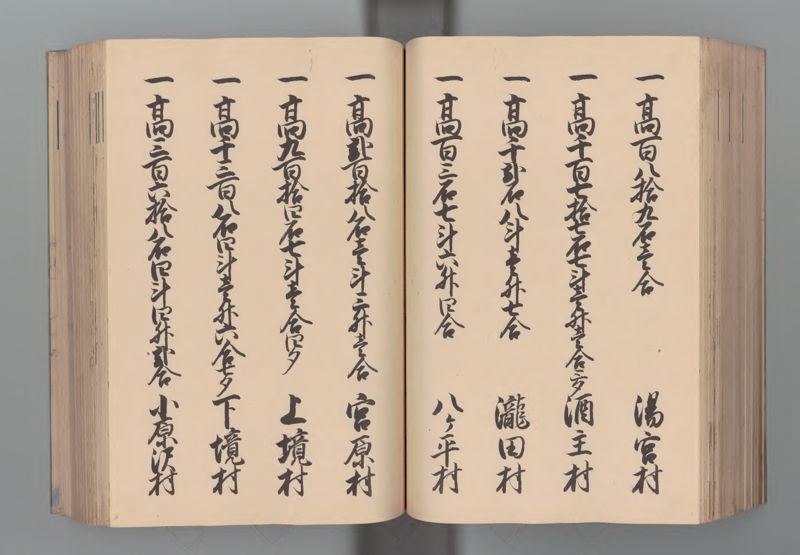 一 高百八拾九石壱合 湯宮村
一 高千百七拾七石七斗壱升壱合三夕 酒主村
一 高千弐石八斗壱升七合 瀧田村
一 高百三石七斗六升四合 八ケ平村
一 高弐百拾八石壱斗三升壱合 宮原村
一 高九百拾四石七斗壱合四夕 上境村
一 高千三百八石四斗壱升六合七夕 下境村
一 高三百六拾八石四斗四升弐合 小原沢村